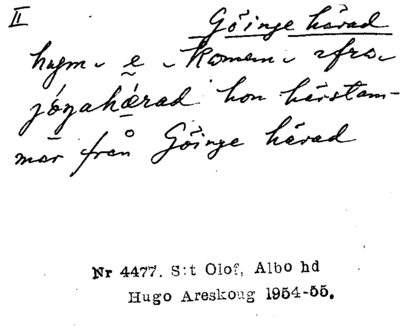 II Göinge härad
hugm- e -komem- -fra-
jøyahǽrad hon härstam-
mar från Göinge härad
Nr 4477. S:t Olof, Albo hd
Hugo Areskoug 1954-55.